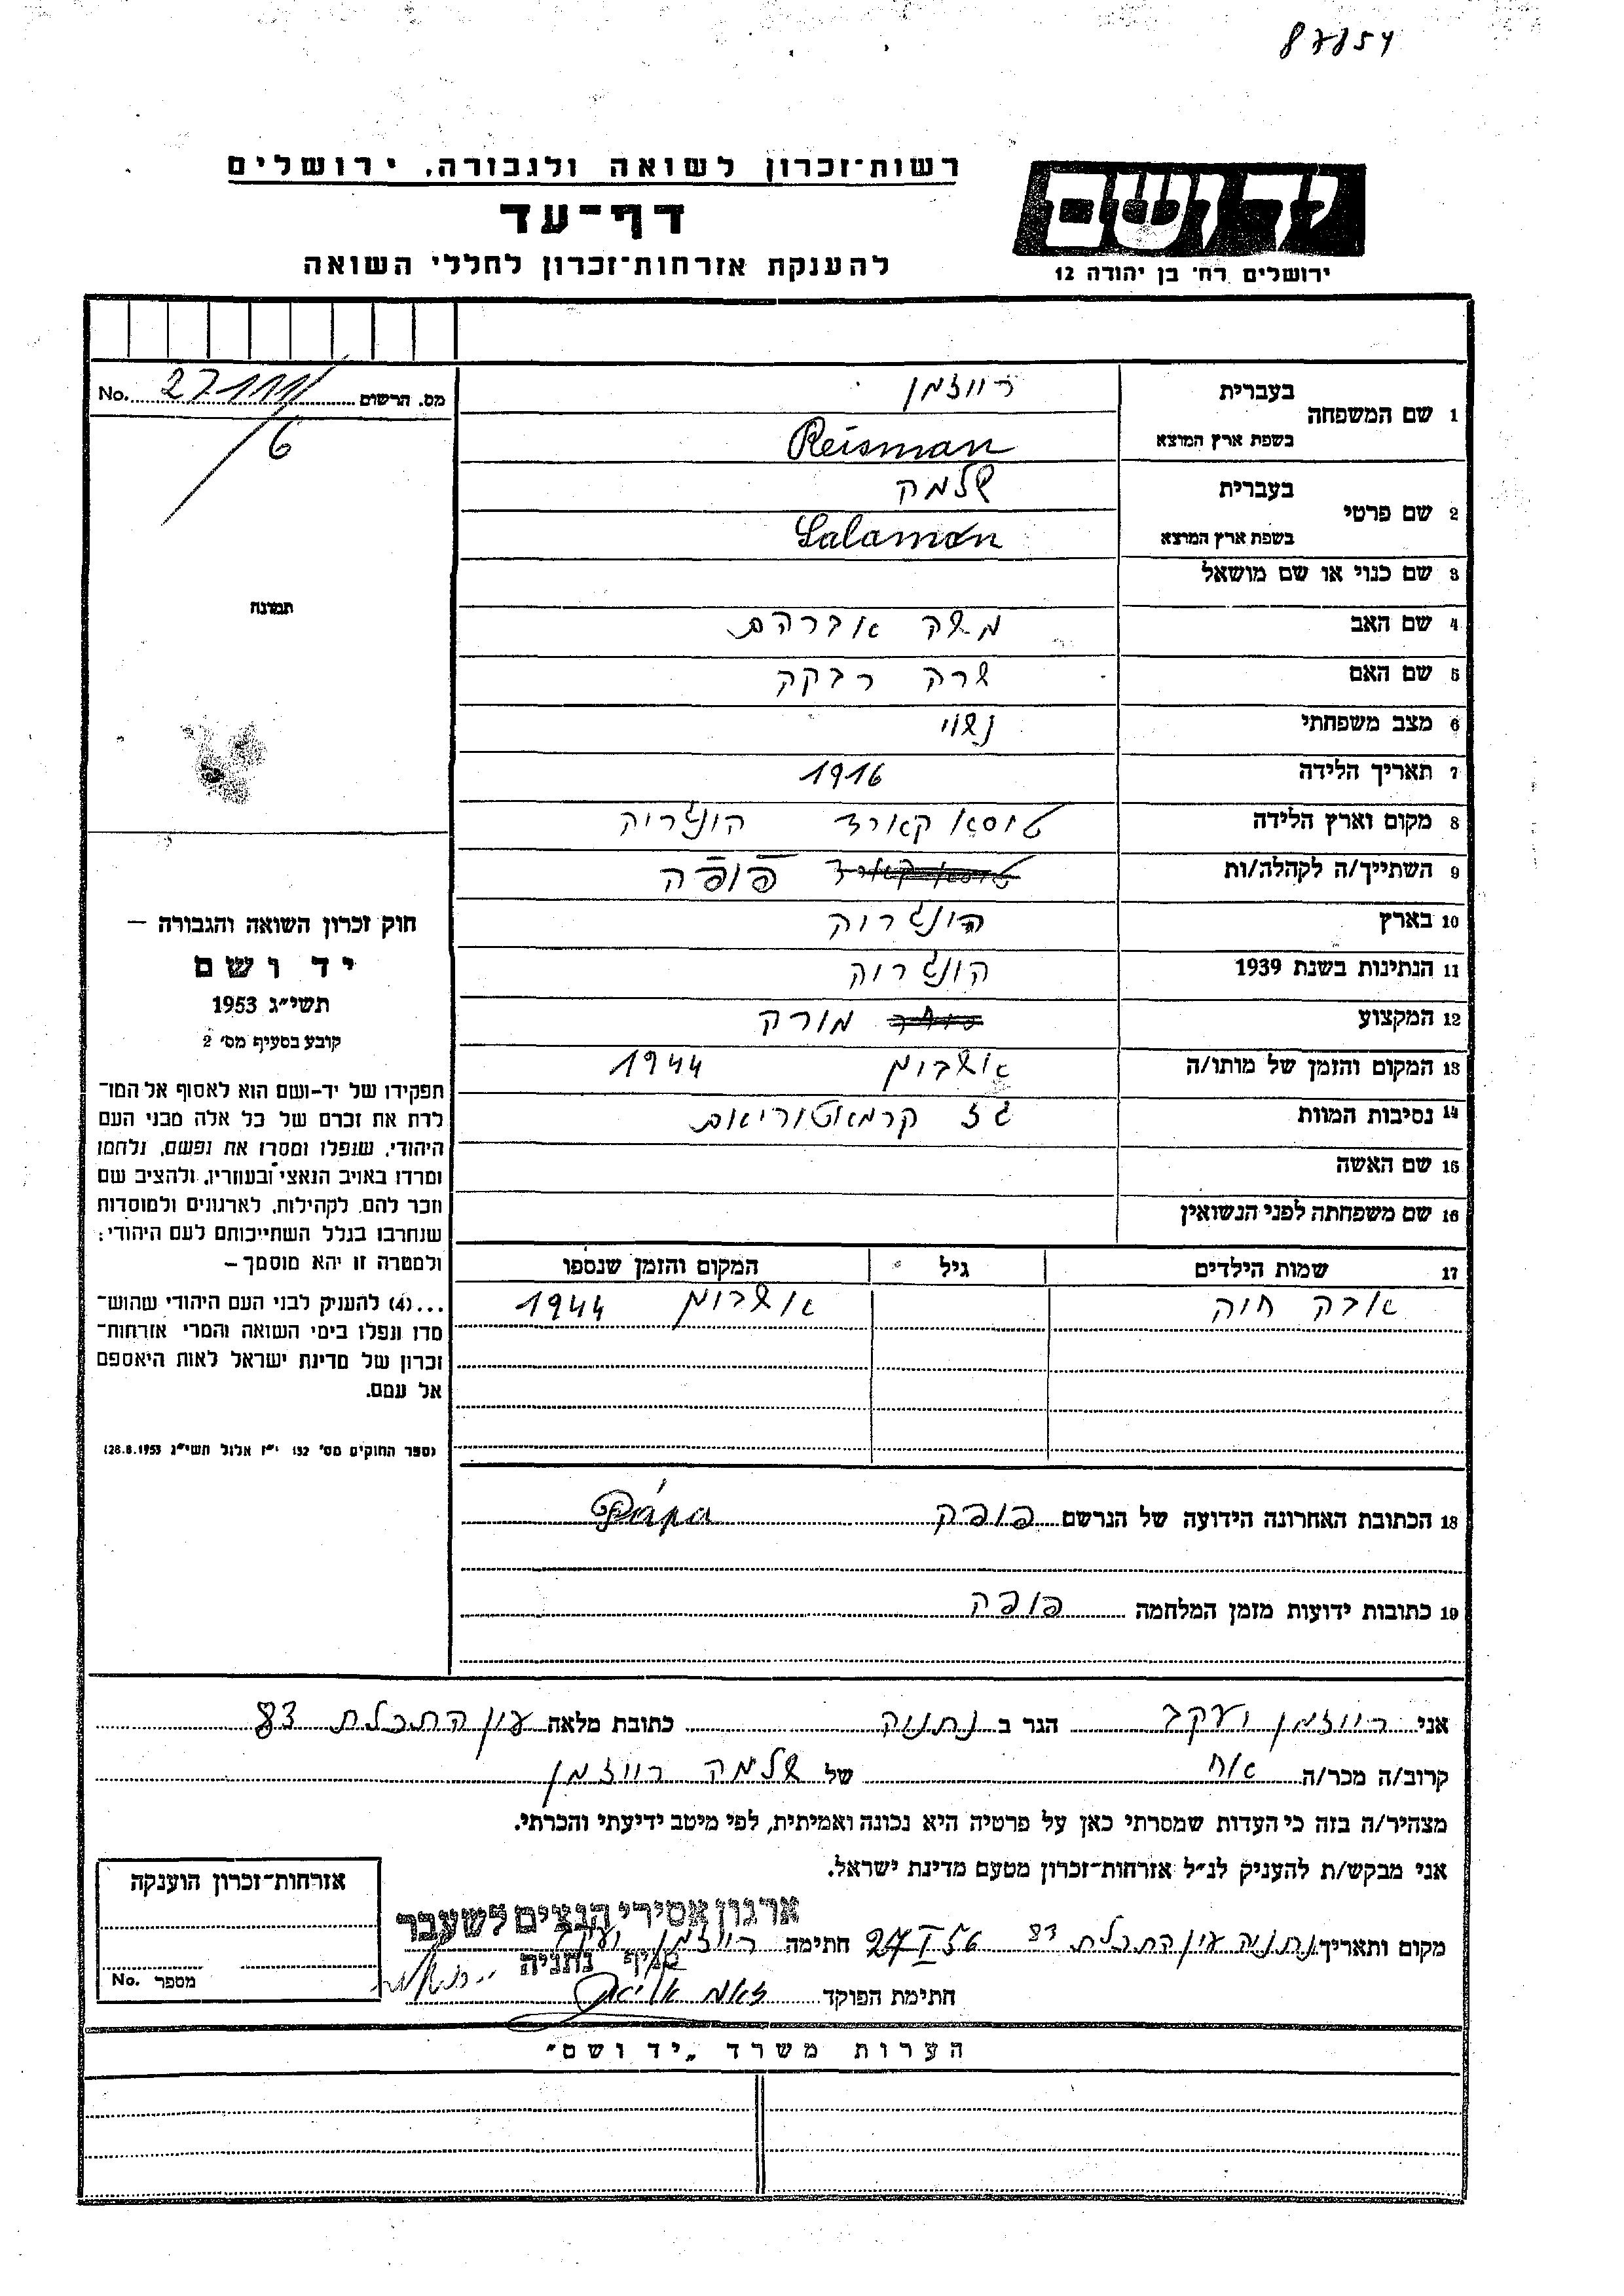 87854
רשות־זכרון לשואה ולגבורה, ירושלים
דף־עד
להענקת אזרחות־זכרון לחללי השואה
יד ושם
ירושלים רח׳ בן יהודה 12
No. 27111/ מס. הרשום
6
תמונה
חוק זכרון השואה והגבורה —
יד ושם
תשי״ג 1953
קובע בסעיף מס׳ 2
תפקידו של יד-ושם הוא לאסוף אל המו־
לדת את זכרם של כל אלה מבני העם
היהודי, שנפלו ומסרו את נפשם, נלחמו
ומרדו באויב הנאצי ובעוזריו, ולהציב שם
וזכר להם, לקהילות, לארגונים ולמוסדות
שנחרבו בגלל השתייכותם לעם היהודי;
ולמטרה זו יהא מוסמך —
...(4) להעניק לבני העם היהודי שהוש־
מדו ונפלו בימי השואה והמרי אזרחות־
זכרון של מדינת ישראל לאות היאספם
אל עמם.
(ספר החוקים מס׳ 132 י״ז אלול תשי״ג 28.8.1953)
1 שם המשפחה בעברית רייזמן
בשפת ארץ המוצא Reisman
2 שם פרטי בעברית שלמה
בשפת ארץ המוצא Salamon
3 שם כנוי או שם מושאל
4 שם האב משה אברהם
5 שם האם שרה רבקה
6 מצב משפחתי נשוי
7 תאריך הלידה 1916
8 מקום וארץ הלידה הונגריה
9 השתייך/ה לקהלה/ות פופה
10 בארץ הונגריה
11 הנתינות בשנת 1939 הונגריה
12 המקצוע מורה
13 המקום והזמן של מותו/ה אושבוים 1944
14 נסיבות המוות גז קרמאטוריאום
15 שם האשה
16 שם משפחתה לפני הנשואין
17 שמות הילדים גיל המקום והזמן שנספו
אבה חוה אושבוים 1944
18 הכתובת האחרונה הידועה של הנרשם פופה Pápa
19 כתובות ידועות מזמן המלחמה פופה
אני רייזמן יעקב הגר ב נתניה כתובת מלאה עין התכלת 83
קרוב/ה מכר/ה אח של שלמה רייזמן
מצהיר/ה בזה כי העדות שמסרתי כאן על פרטיה היא נכונה ואמיתית, לפי מיטב ידיעתי והכרתי.
אני מבקש/ת להעניק לנ״ל אזרחות־זכרון מטעם מדינת ישראל.
ארגון אסירי הנצים לשעבר
סניף נתניה
מקום ותאריך נתניה עין התכלת 83 27 I 56 חתימה רייזמן יעקב
חתימת הפוקד
אזרחות־זכרון הוענקה
No. מספר
הערות משרד „יד ושם״